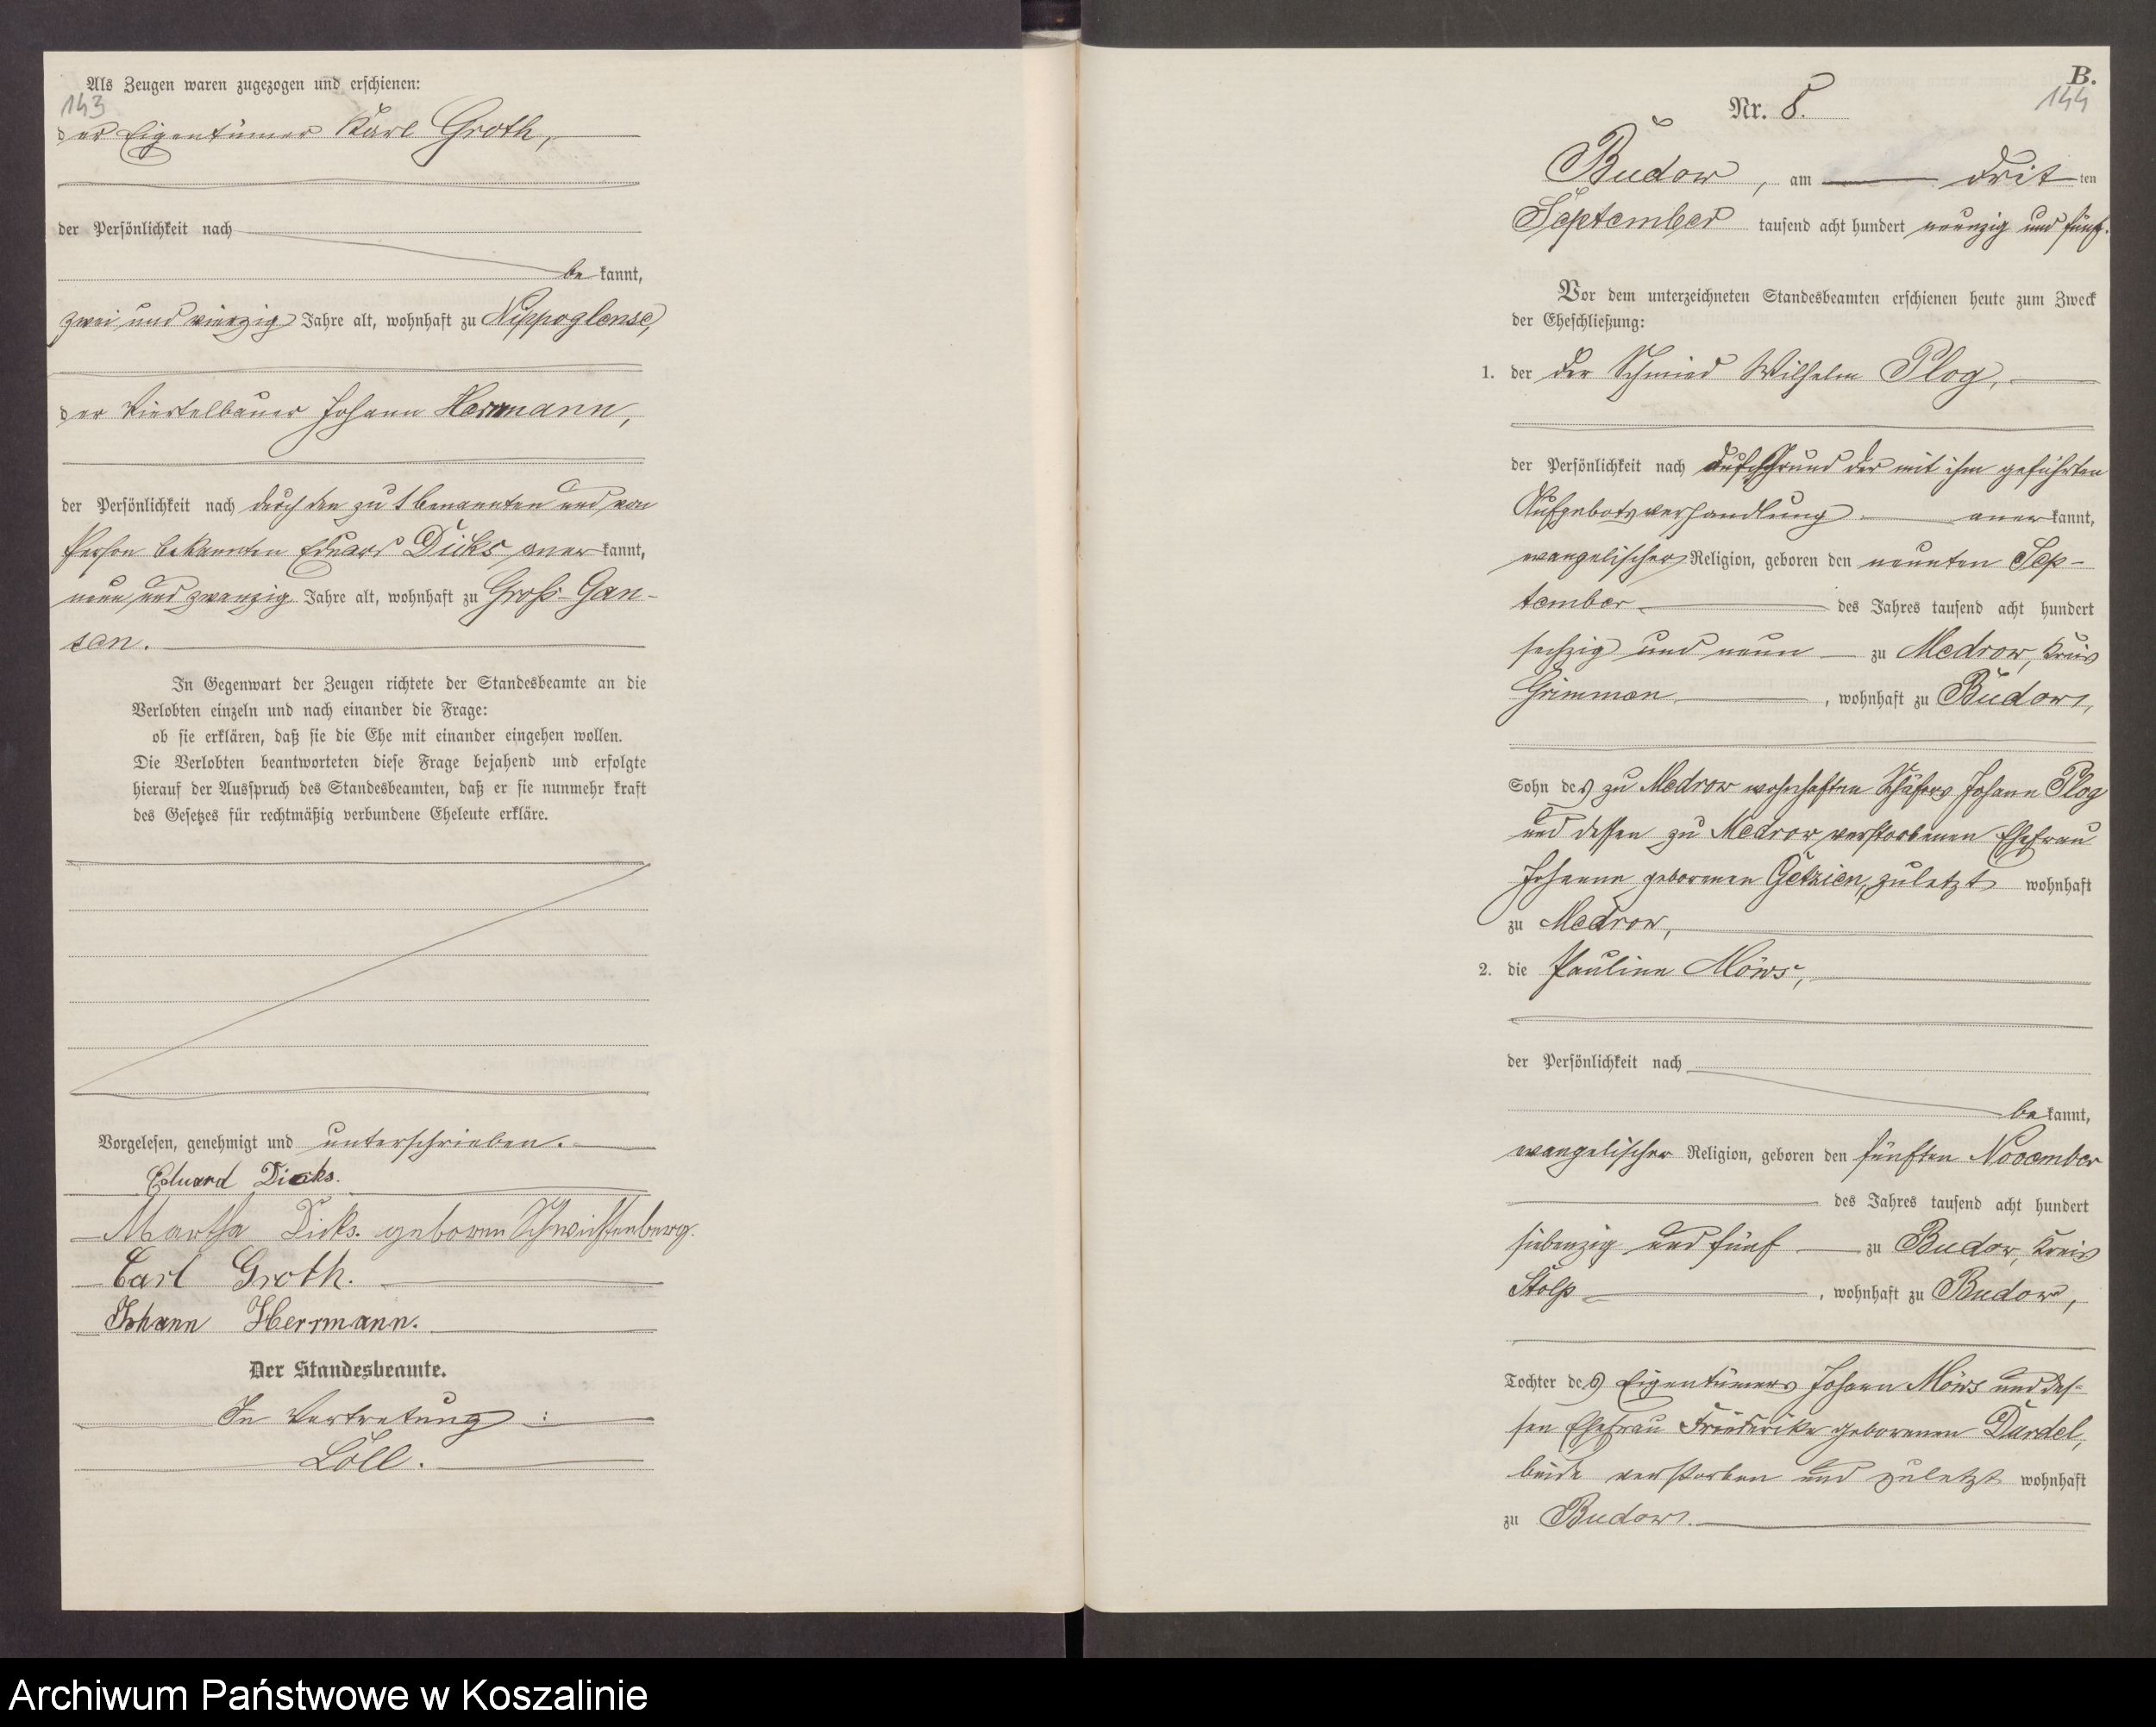 Als Zeugen waren zugezogen und erschienen:
143
der Eigentümer Karl Groth,
der Persönlichkeit nach
be kannt,
zwei und vierzig Jahre alt, wohnhaft zu Nippoglense,
der Viertelbauer Johann Herrmann,
der Persönlichkeit nach durch den zu 1 benannten und von
Person bekannten Eduard Dicks aner kannt,
neun und zwanzig Jahre alt, wohnhaft zu Groß-Gan-
sen.
In Gegenwart der Zeugen richtete der Standesbeamte an die
Verlobten einzeln und nach einander die Frage:
ob sie erklären, daß sie die Ehe mit einander eingehen wollen.
Die Verlobten beantworteten diese Frage bejahend und erfolgte
hierauf der Ausspruch des Standesbeamten, daß er sie nunmehr kraft
des Gesetzes für rechtmäßig verbundene Eheleute erkläre.
Vorgelesen, genehmigt und unterschrieben.
Eduard Dicks.
Martha Dicks. geboren Schwichtenberg.
Carl Groth.
Johann Herrmann.
Der Standesbeamte.
In Vertretung :
Löll.
B.
144
Nr. 8.
Budow, am drit ten
September tausend acht hundert neunzig und fünf.
Vor dem unterzeichneten Standesbeamten erschienen heute zum Zweck
der Eheschließung:
1. der der Schmied Wilhelm Plog,
der Persönlichkeit nach auf Grund der mit ihm geführten
Aufgebotsverhandlung aner kannt,
evangelischer Religion, geboren den neunten Sep-
tember des Jahres tausend acht hundert
sechzig und neun zu Medrow, Kreis
Grimmen, wohnhaft zu Budow,
Sohn des zu Medrow wohnhaften Schäfers Johann Plog
und dessen zu Medrow verstorbenen Ehefrau
Johanna geborenen Getzien, zuletzt wohnhaft
zu Medrow,
2. die Pauline Möws,
der Persönlichkeit nach
be kannt,
evangelischer Religion, geboren den fünften November
des Jahres tausend acht hundert
siebenzig und fünf zu Budow, Kreis
Stolp, wohnhaft zu Budow,
Tochter des Eigentümers Johann Möws und des-
sen Ehefrau Friederike geborenen Dardel,
beide verstorben und zuletzt wohnhaft
zu Budow.
Archiwum Państwowe w Koszalinie